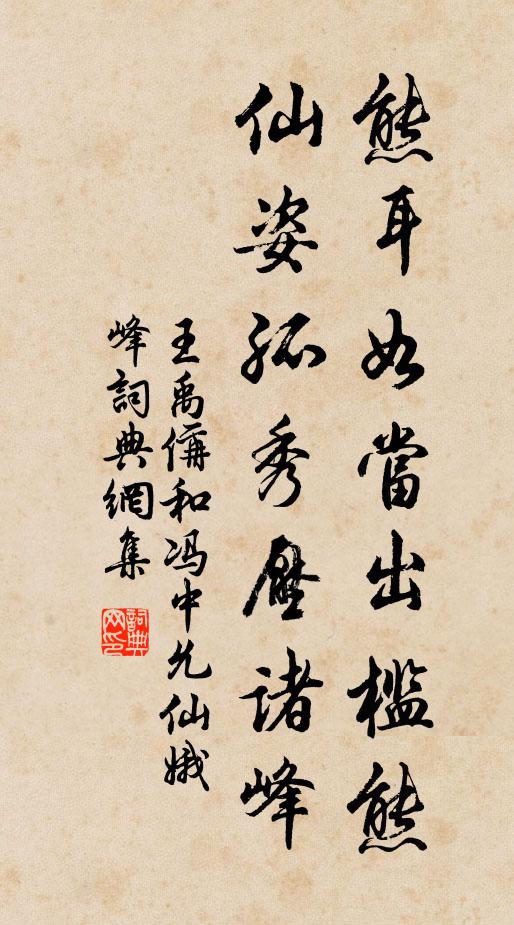 熊耳如當出檻熊
仙姿孤秀壓諸峰
王禹偁和冯中允仙娥
峰詞典網集
詞典网印